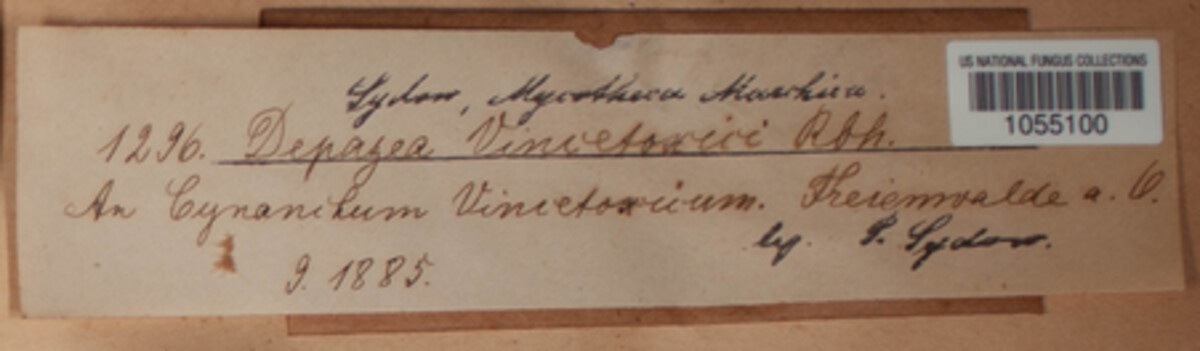 Sydow, Mycotheca Marchica.
1296. Depazea Vincetoxici Rbh.
An Cynanchum Vincetoxicum. Freienwalde a. O.
lg. P. Sydow.
9. 1885.
US NATIONAL FUNGUS COLLECTIONS
1055100